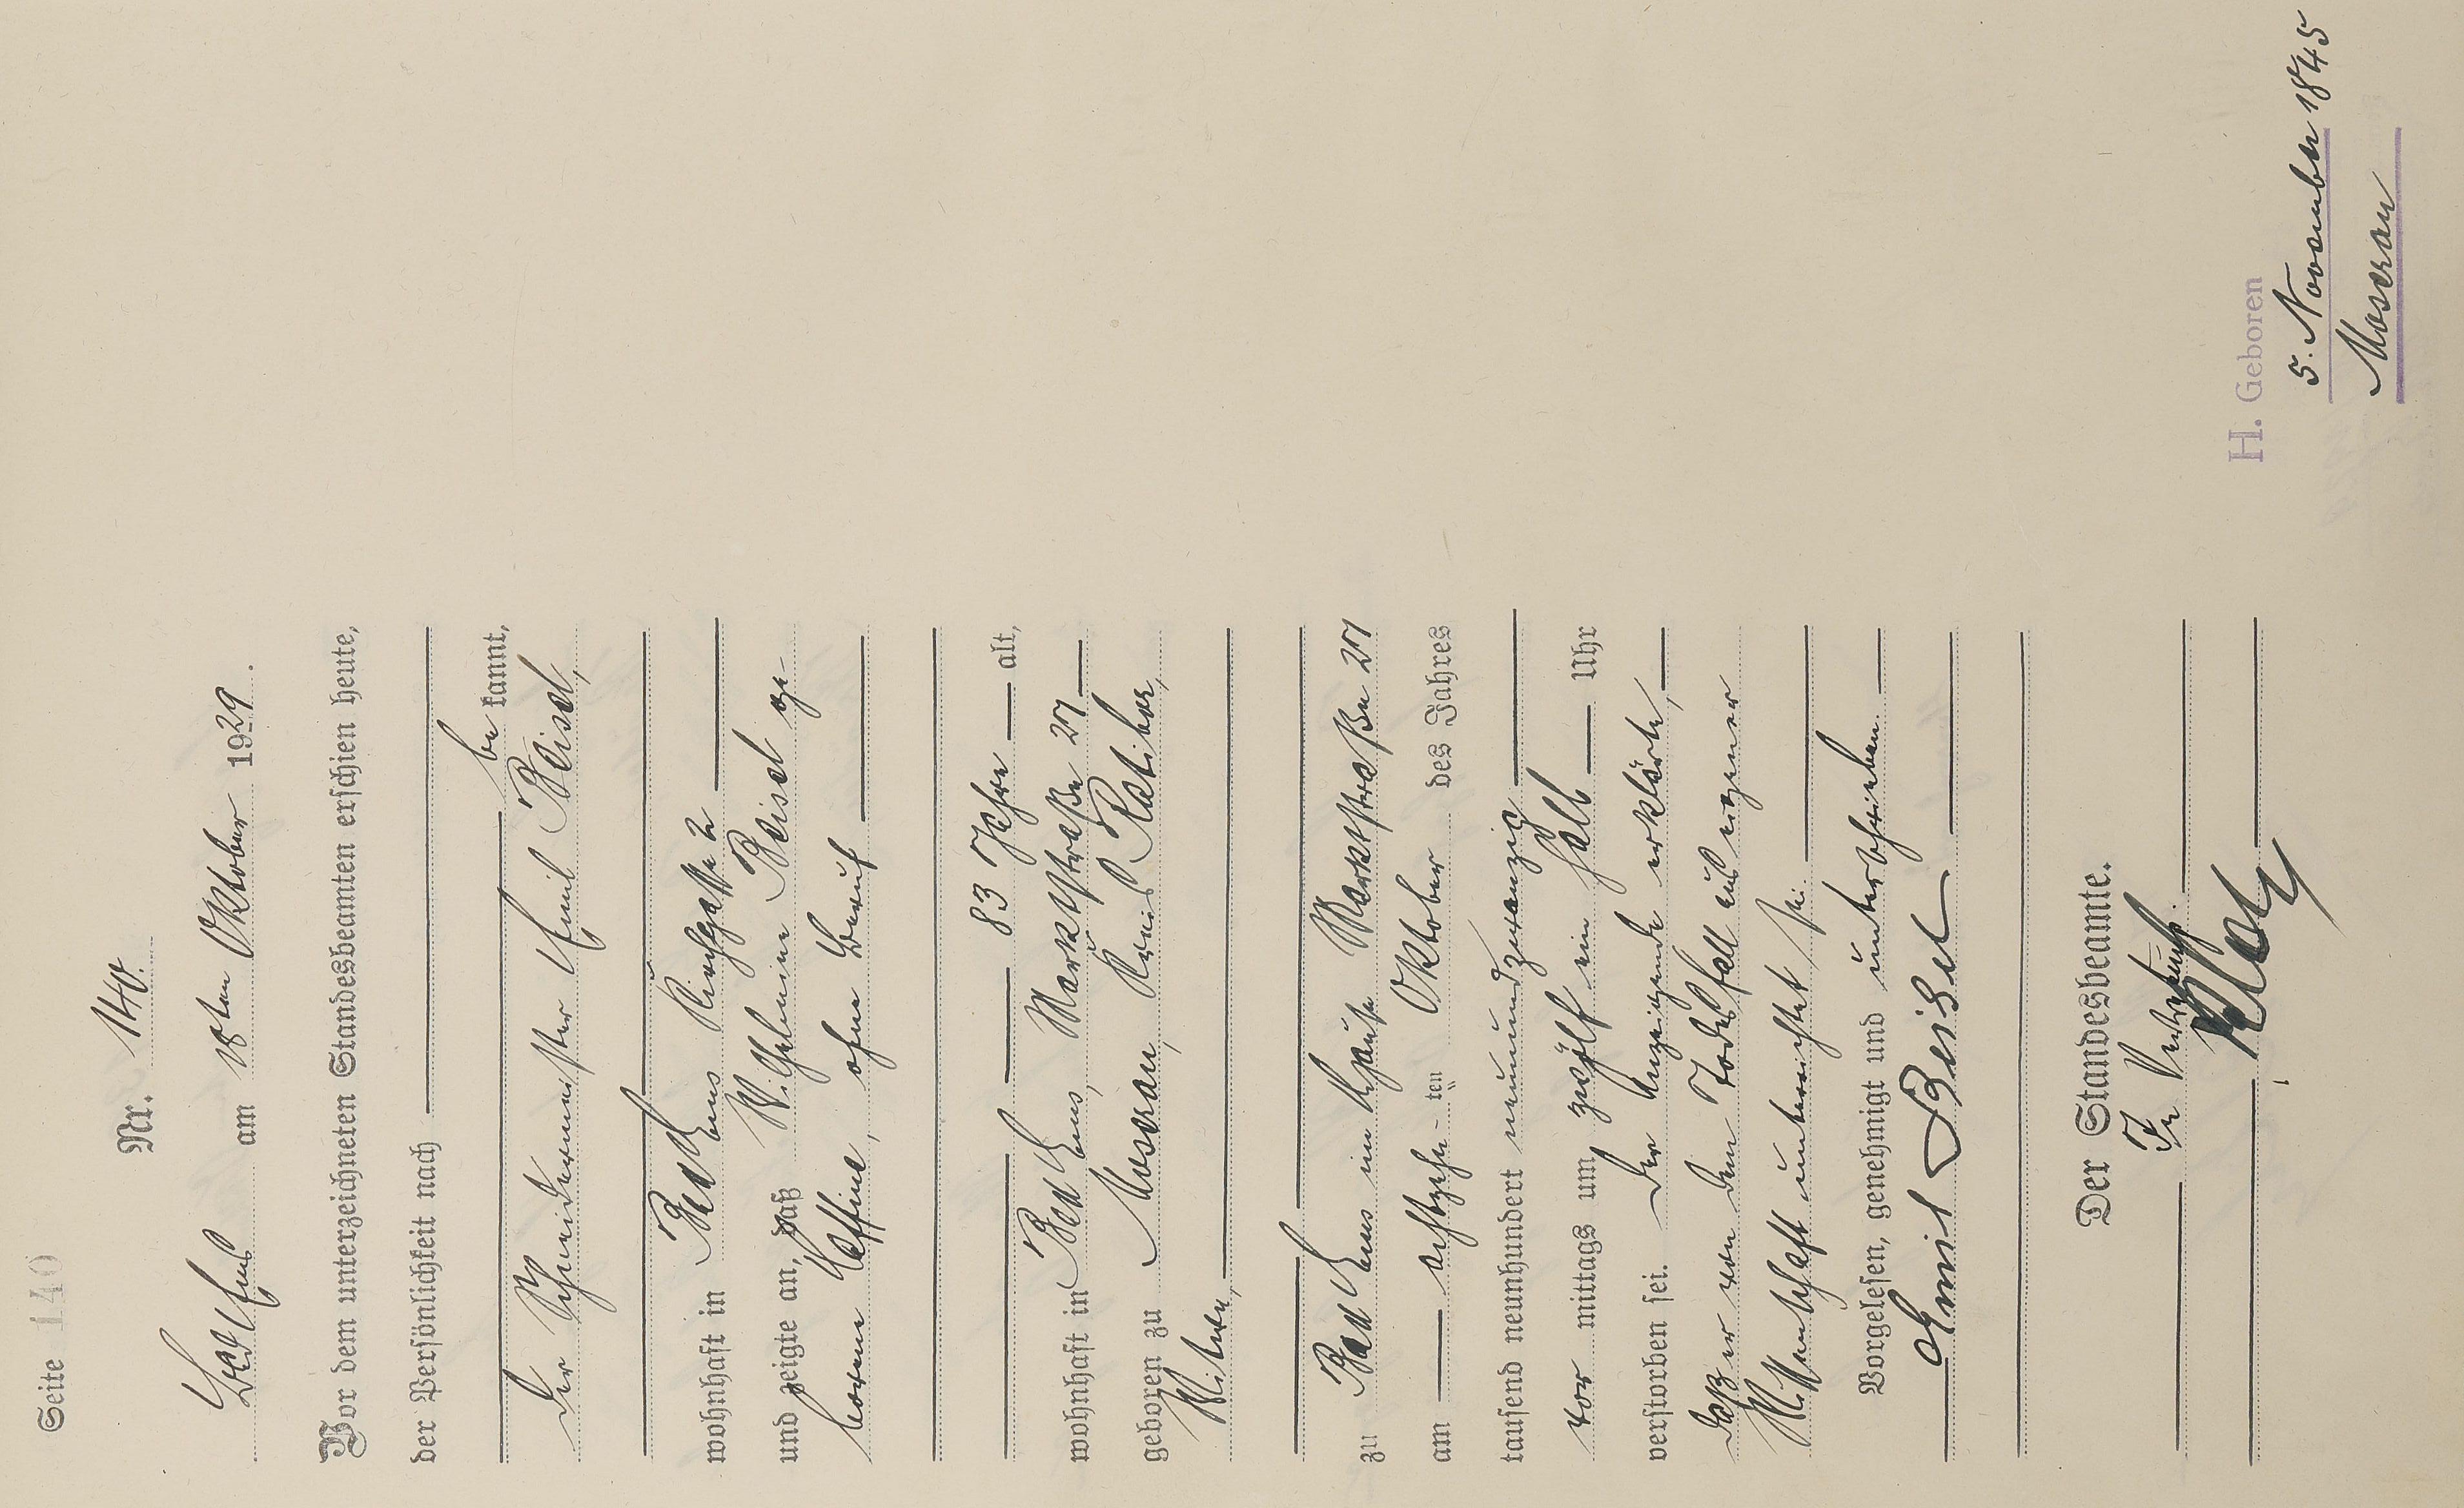 Seite 140
Nr. 140.
Bad Ems am 18ten Oktober 1929.
Vor dem unterzeichneten Standesbeamten erschien heute,
der Persönlichkeit nach
be kannt,
der Schneidermeister Emil Beisel,
wohnhaft in Bad Ems Kirchgasse 2
und zeigte an, daß Wilhelmine Beisel ge-
borene, ohne Beruf
83 Jahre alt,
wohnhaft in Bad Ems, Marktstraße 27
geboren zu Mosrau, Kreis Ratibor,
Witwe,
zu Bad Ems im Hause Marktstraße 27
am achtzehn-ten Oktober des Jahres
tausend neunhundert neunundzwanzig
vor mittags um zwölf ein halb Uhr
verstorben sei. Der Anzeigende erklärte,
daß er von dem Todesfall aus eigener
Wissenschaft unterrichtet sei.
Vorgelesen, genehmigt und unterschrieben.
Emil Beisel
Der Standesbeamte.
In Vertretung.
H. Geboren
5. November 1845
Mosrau